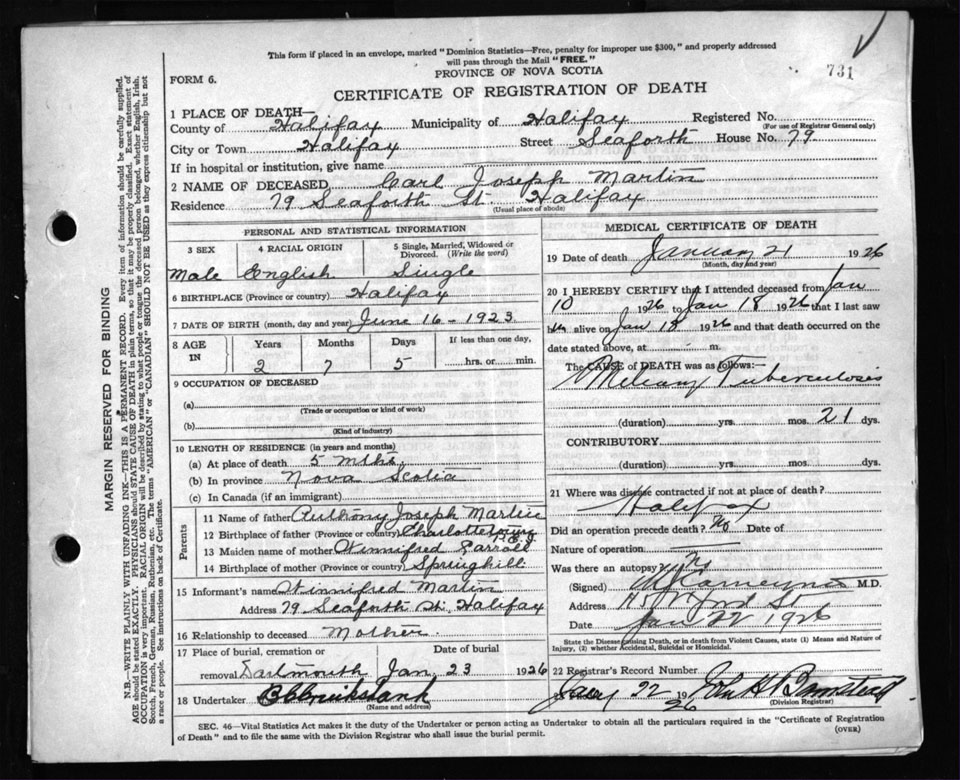 This form if placed in an envelope, marked "Dominion Statistics—Free, penalty for improper use $300," and properly addressed
will pass through the Mail "FREE."
731
FORM 6.
PROVINCE OF NOVA SCOTIA
CERTIFICATE OF REGISTRATION OF DEATH
1 PLACE OF DEATH—
County of Halifax Municipality of Halifax Registered No.
(For use of Registrar General only)
City or Town Halifax Street Seaforth House No. 79
If in hospital or institution, give name
2 NAME OF DECEASED Carl Joseph Martin
Residence 79 Seaforth St. Halifax
(Usual place of abode)
PERSONAL AND STATISTICAL INFORMATION
3 SEX 4 RACIAL ORIGIN 5 Single, Married, Widowed or Divorced. (Write the word)
Male English Single
6 BIRTHPLACE (Province or country) Halifax
7 DATE OF BIRTH (month, day and year) June 16 - 1923
8 AGE IN Years Months Days If less than one day,
2 7 5 hrs. or min.
9 OCCUPATION OF DECEASED
(a)
(Trade or occupation or kind of work)
(b)
(Kind of industry)
10 LENGTH OF RESIDENCE (in years and months)
(a) At place of death 5 mths.
(b) In province Nova Scotia
(c) In Canada (if an immigrant)
Parents
11 Name of father Anthony Joseph Martin
12 Birthplace of father (Province or country) Charlottetown P.E.I
13 Maiden name of mother Winnifred Carroll
14 Birthplace of mother (Province or country) Springhill
15 Informant's name Winnifred Martin
Address 79 Seaforth St. Halifax
16 Relationship to deceased Mother.
17 Place of burial, cremation or Date of burial
removal Dartmouth Jan 23 1926
18 Undertaker
(Name and address)
MEDICAL CERTIFICATE OF DEATH
19 Date of death January 21 1926
(Month, day and year)
20 I HEREBY CERTIFY that I attended deceased from Jan
10 1926 to Jan 18 1926 that I last saw
him alive on Jan 18 1926 and that death occurred on
date stated above, at m.
The CAUSE of DEATH was as follows:
Miliary Tuberculosis
(duration) yrs. mos. 21 dys.
CONTRIBUTORY
(duration) yrs. mos. dys.
21 Where was disease contracted if not at place of death?
Halifax
Did an operation precede death? No Date of
Nature of operation
Was there an autopsy? No
(Signed) M.D.
Address St
Date Jan 22 1926
State the Disease causing Death, or in death from Violent Causes, state (1) Means and Nature of
Injury, (2) whether Accidental, Suicidal or Homicidal.
22 Registrar's Record Number
Jany 22 1926
(Division Registrar)
SEC. 46—Vital Statistics Act makes it the duty of the Undertaker or person acting as Undertaker to obtain all the particulars required in the "Certificate of Registration
of Death" and to file the same with the Division Registrar who shall issue the burial permit.
(OVER)
MARGIN RESERVED FOR BINDING
N.B.—WRITE PLAINLY WITH UNFADING INK—THIS IS A PERMANENT RECORD. Every item of information should be carefully supplied.
AGE should be stated EXACTLY. PHYSICIANS should STATE CAUSE OF DEATH in plain terms, so that it may be properly classified. Exact statement of
OCCUPATION is very important. RACIAL ORIGIN will be described by stating to what people or tongue the deceased person belonged, whether English, Irish,
Scotch, French, German, Russian, Ruthenian, etc. The terms "AMERICAN" or "CANADIAN" SHOULD NOT BE USED as they express citizenship but not
a race or people. See instructions on back of Certificate.